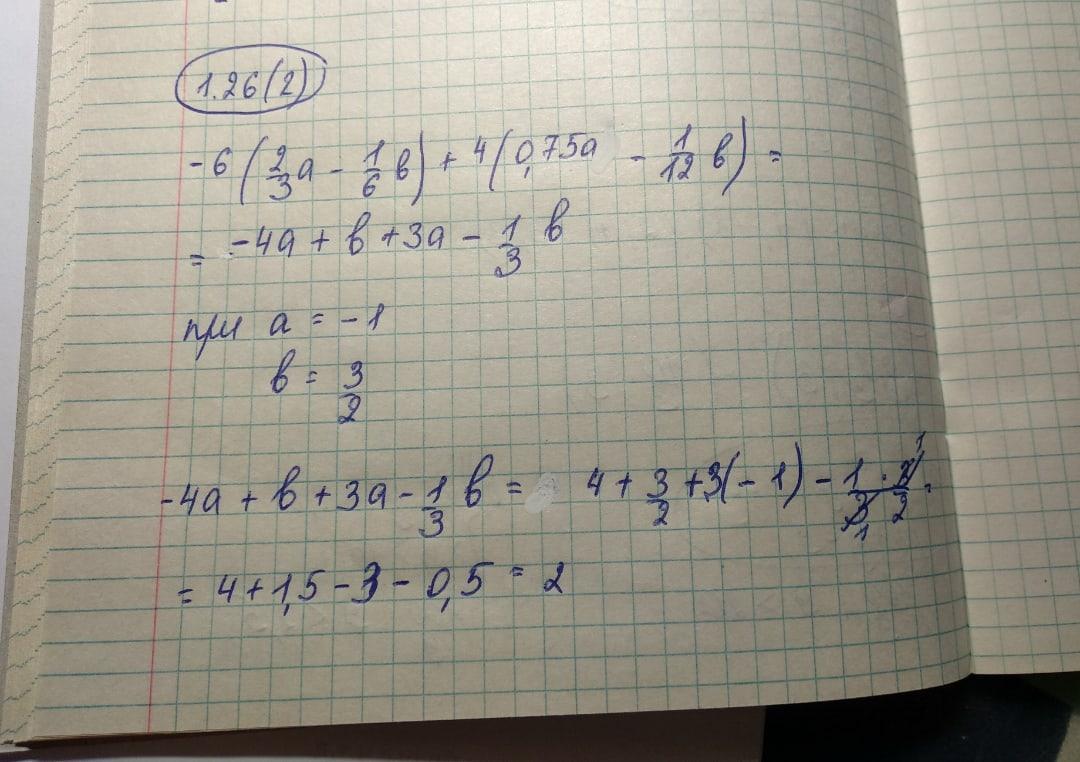 1.26(2)
-6(2/3a - 1/6 в) + 4(0,75a - 1/12 в) =
= -4a + в + 3a - 1/3 в
при a = -1
в = 3/2
-4a + в + 3a - 1/3 в = 4 + 3/2 + 3(-1) - 1/3 · 3/2 =
= 4 + 1,5 - 3 - 0,5 = 2